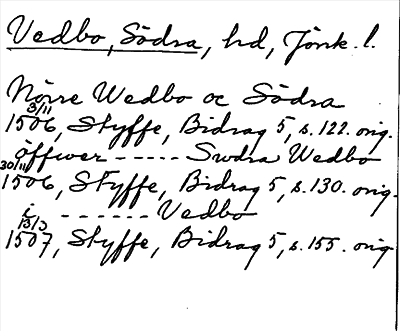 Vedbo, Södra, hd, Jönk. l.
Nörre Wedbo oc Södra
3/11
1506, Styffe, Bidrag 5, s. 122. orig.
öffwer ----- Swdra Wedbo
30/11
1506, Styffe, Bidrag 5, s. 130. orig.
i ------ Vedbo
13/3
1507, Styffe, Bidrag 5, s. 155. orig.